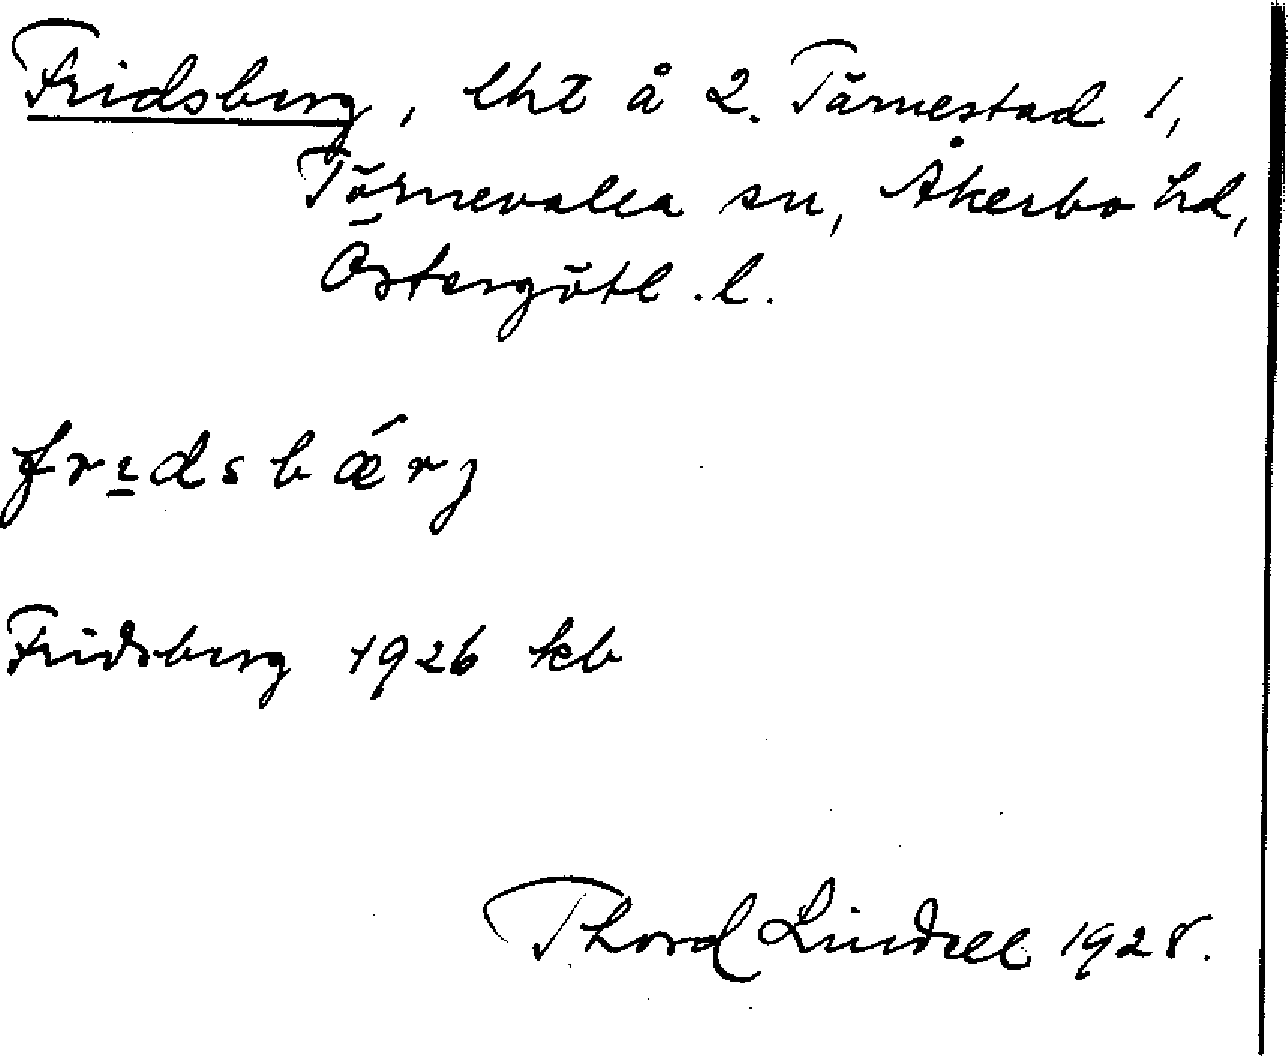 Fridsberg, lht å 2. Tärnestad 1,
Törnevalla sn, Åkerbo hd,
Östergötl. l.
frɩdsbǽrj
Fridsberg 1926 kb
Thord Lindell 1928.